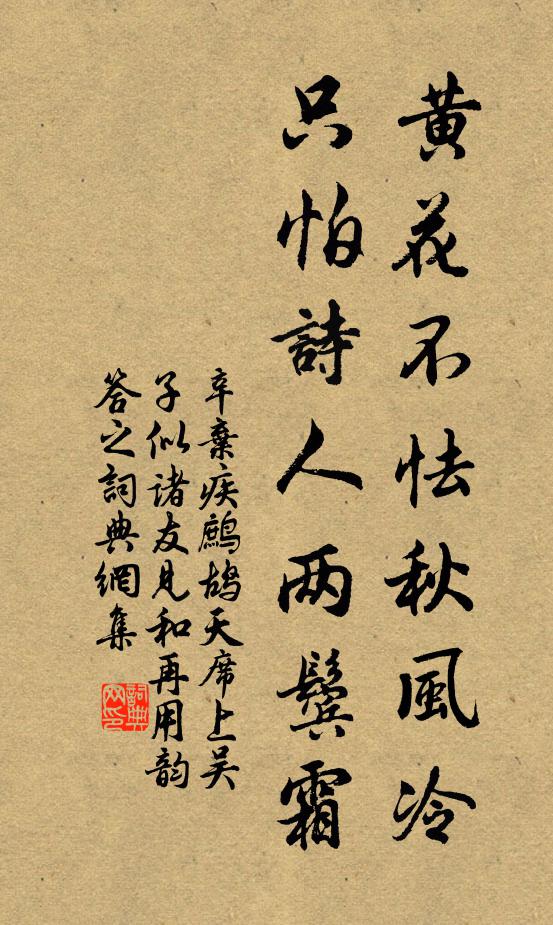 黄花不怯秋風冷
只怕詩人两鬓霜
辛棄疾鷓鴣天席上吴
子似諸友見和再用韵
答之詞典網集
詞典
网印